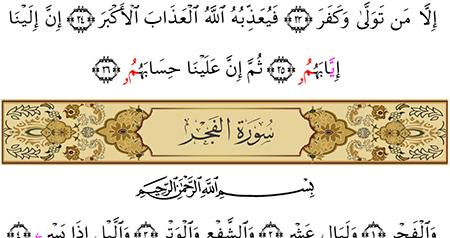 إِلَّا مَن تَوَلَّىٰ وَكَفَرَ ﴿٢٣﴾ فَيُعَذِّبُهُ ٱللَّهُ ٱلْعَذَابَ ٱلْأَكْبَرَ ﴿٢٤﴾ إِنَّ إِلَيْنَا
إِيَّابَهُمُۥ ﴿٢٥﴾ ثُمَّ إِنَّ عَلَيْنَا حِسَابَهُمُۥ ﴿٢٦﴾
سُورَةُ الفَجْرِ
بِسْمِ اللَّهِ الرَّحْمَٰنِ الرَّحِيمِ
وَٱلْفَجْرِ ﴿١﴾ وَلَيَالٍ عَشْرٍ ﴿٢﴾ وَٱلشَّفْعِ وَٱلْوَتْرِ ﴿٣﴾ وَٱلَّيْلِ إِذَا يَسْرِۦ ﴿٤﴾